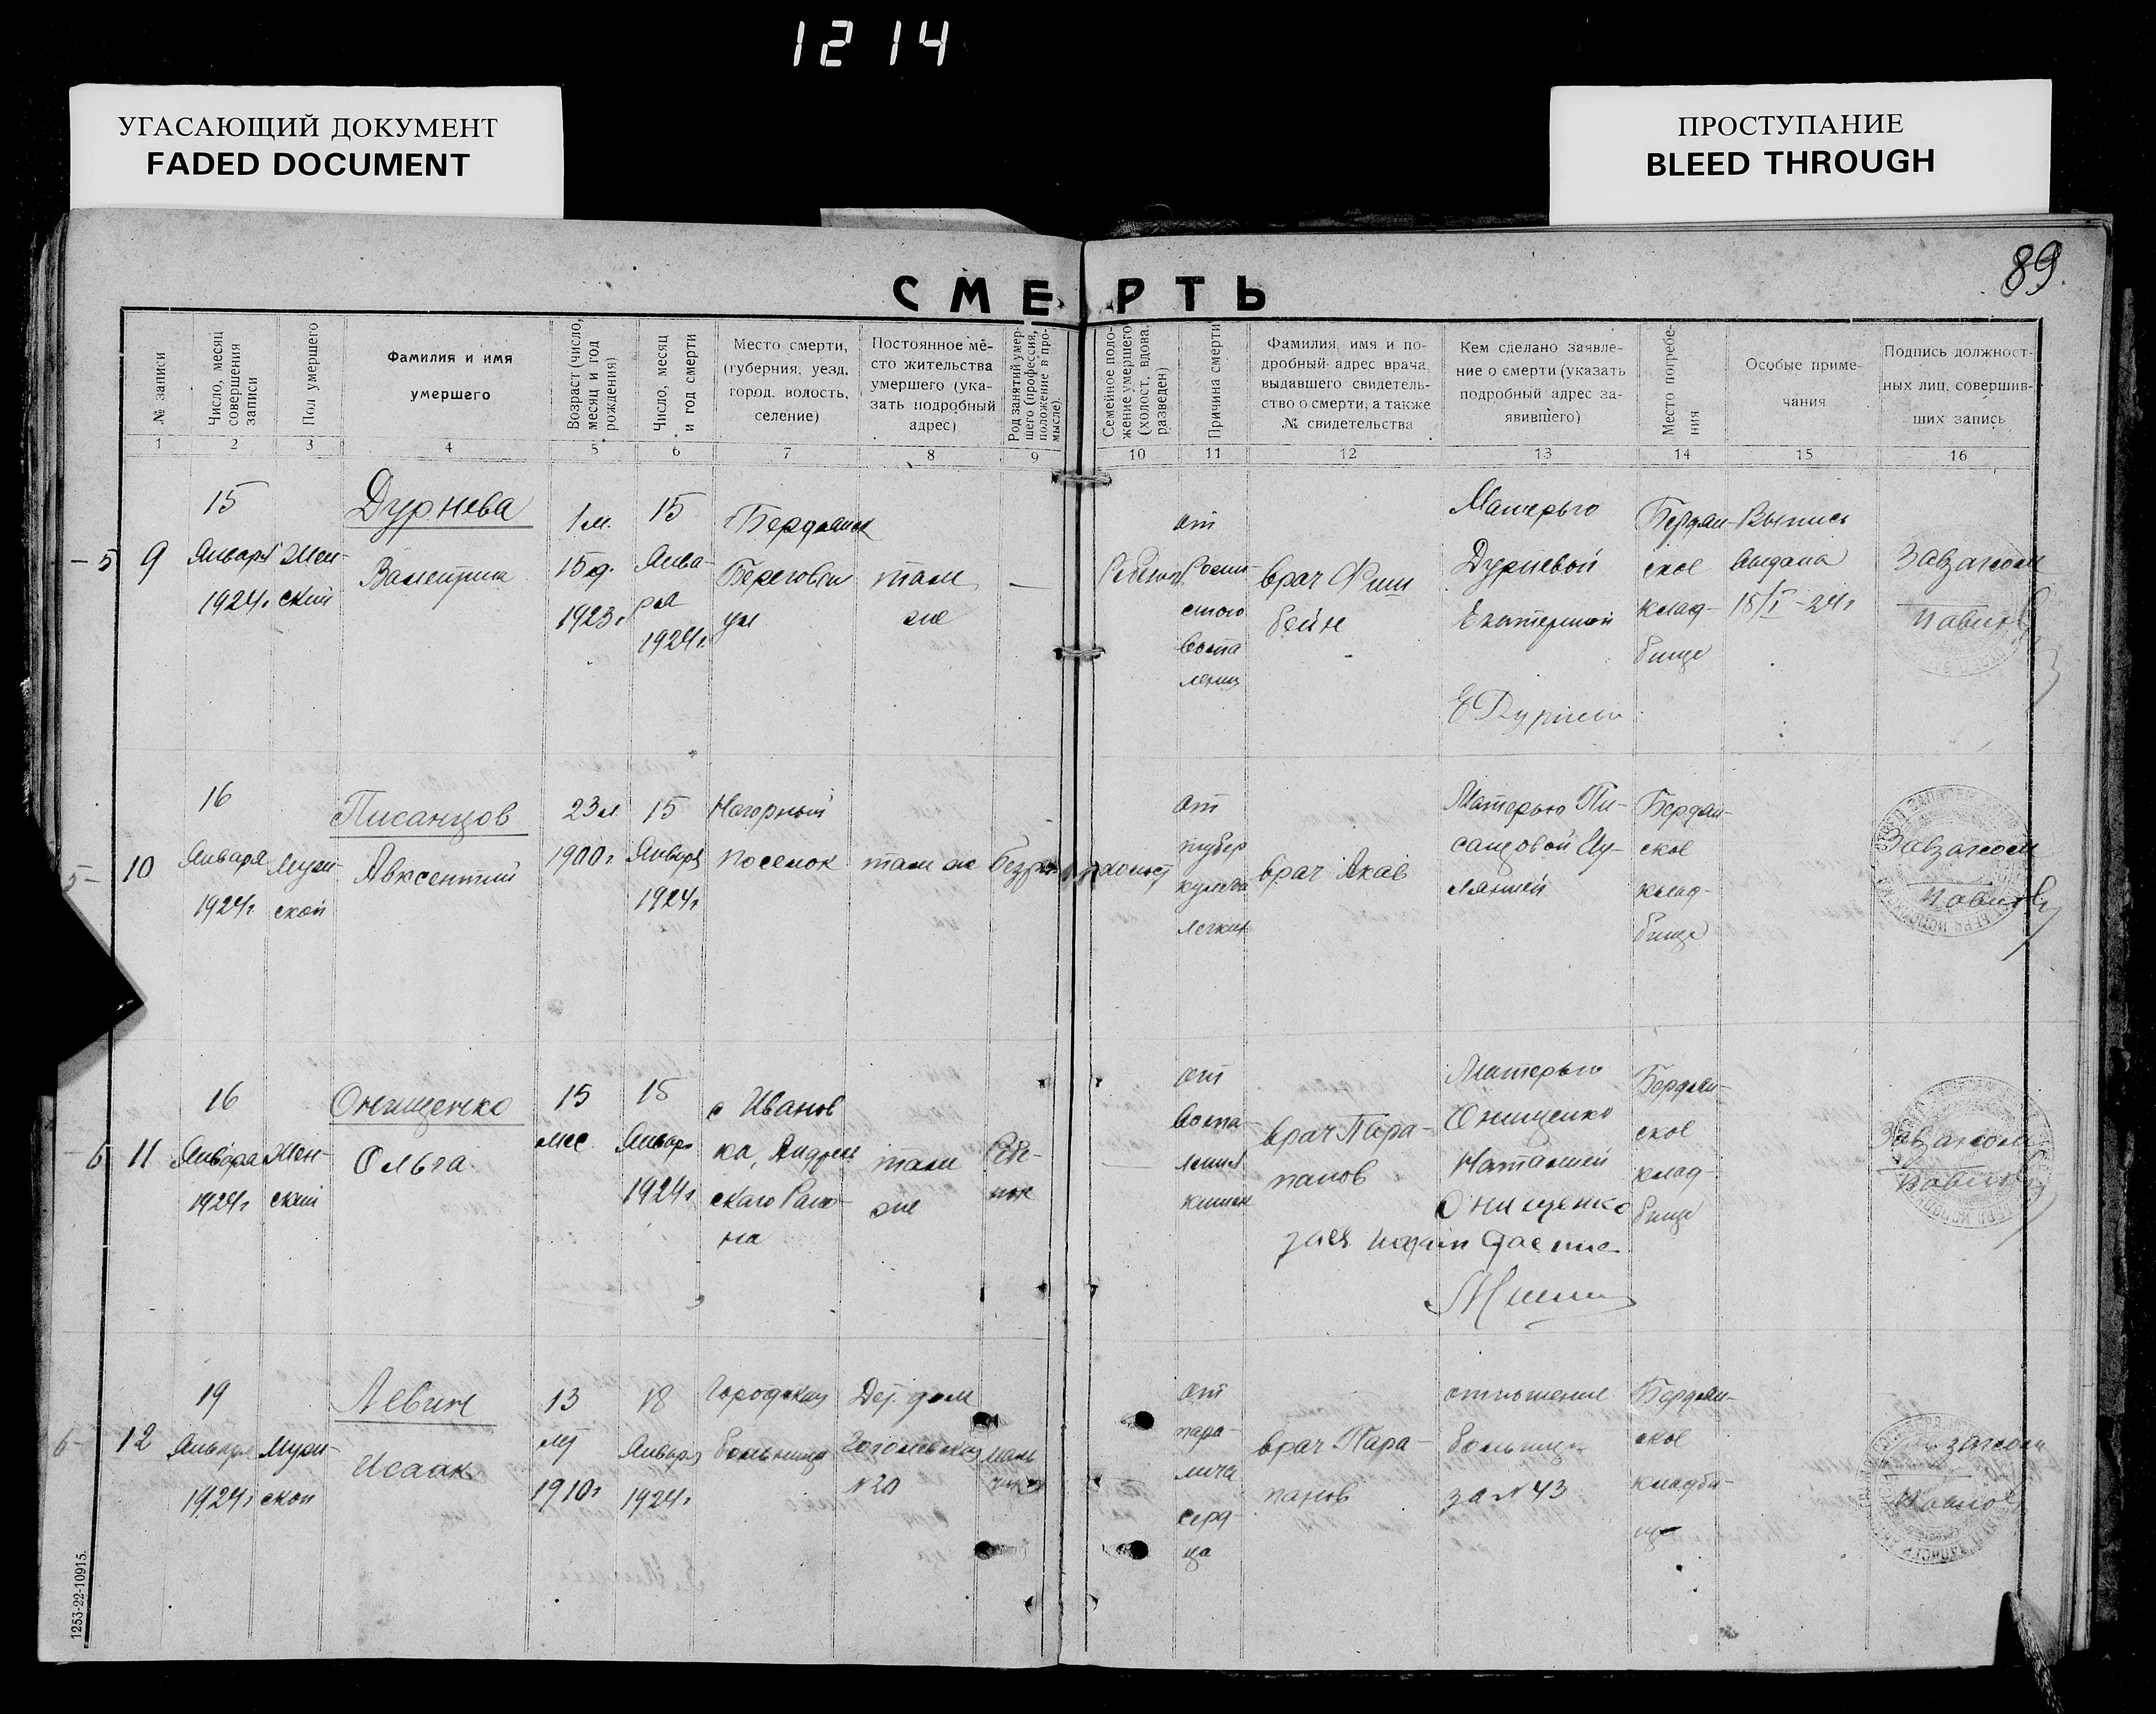 1214
УГАСАЮЩИЙ ДОКУМЕНТ
FADED DOCUMENT
ПРОСТУПАНИЕ
BLEED THROUGH
89.
СМЕРТЬ
№ записи
Число, месяц совершения записи
Пол умершего
Фамилия и имя
умершего
Возраст (число, месяц и год рождения)
Число, месяц и год смерти
Место смерти,
(губерния, уезд,
город, волость,
селение)
Постоянное ме-
сто жительства
умершего (ука-
зать подробный
адрес)
Род занятий умер-
шего (профессия,
положение в про-
мысле).
Семейное поло-
жение умершего
(холост, вдова,
разведен)
Причина смерти
Фамилия, имя и по-
дробный адрес врача,
выдавшего свидетель-
ство о смерти, а также
№ свидетельства
Кем сделано заявле-
ние о смерти (указать
подробный адрес за-
явившего)
Место погребе-
ния
Особые приме-
чания
Подпись должност-
ных лиц, совершив-
ших запись
1 2 3 4 5 6 7 8 9 10 11 12 13 14 15 16
5
9
15
Января
1924г.
Жен-
ский
Дурнева
Валентина
1 м.
15 д.
1923г
15
Янва-
ря
1924г.
Бердянск
Береговая
ул
там
же
—
от
воспа
врач Фиш
бейн
Матерью
Дурневой
Екатериной
Бердян-
ское
клад-
бище
Выпись
выдана
15/I-24г
Завзагсом
5-
10
16
Января
1924г.
Муж-
ской
Писанцов
Авксентий
23 л
1900г
15
Января
1924г
Нагорный
поселок
там же
холост
от
тубер
кулеза
легких
врач Акав
Матерью Пи-
санцовой
Бердян-
ское
клад-
бище
Завзагсом
6
11
16
Января
1924г
Жен-
ский
Онищенко
Ольга
15
мес.
15
Январ
1924г
с Иванов
ка, Андреев
скаго Райо-
на
там
же
Ребе-
нок
от
воспа-
ления
кишек
врач Пара-
панов
Матерью
Онищенко
Наталией
Онищенко
Бердян-
ское
клад-
бище
Завзагсом
6
12
19
Января
1924г
Муж-
ской
Левин
Исаак
13
лет
1910г
18
Января
1924г
Городская
больница
Дет. дом
Гоголевская
№20
маль
чик
от
пара-
лича
серд-
ца
врач Пара-
панов
отношение
больницы
за №43
Бердян-
ское
кладби-
ще
завзагсом
1253-22-10915.